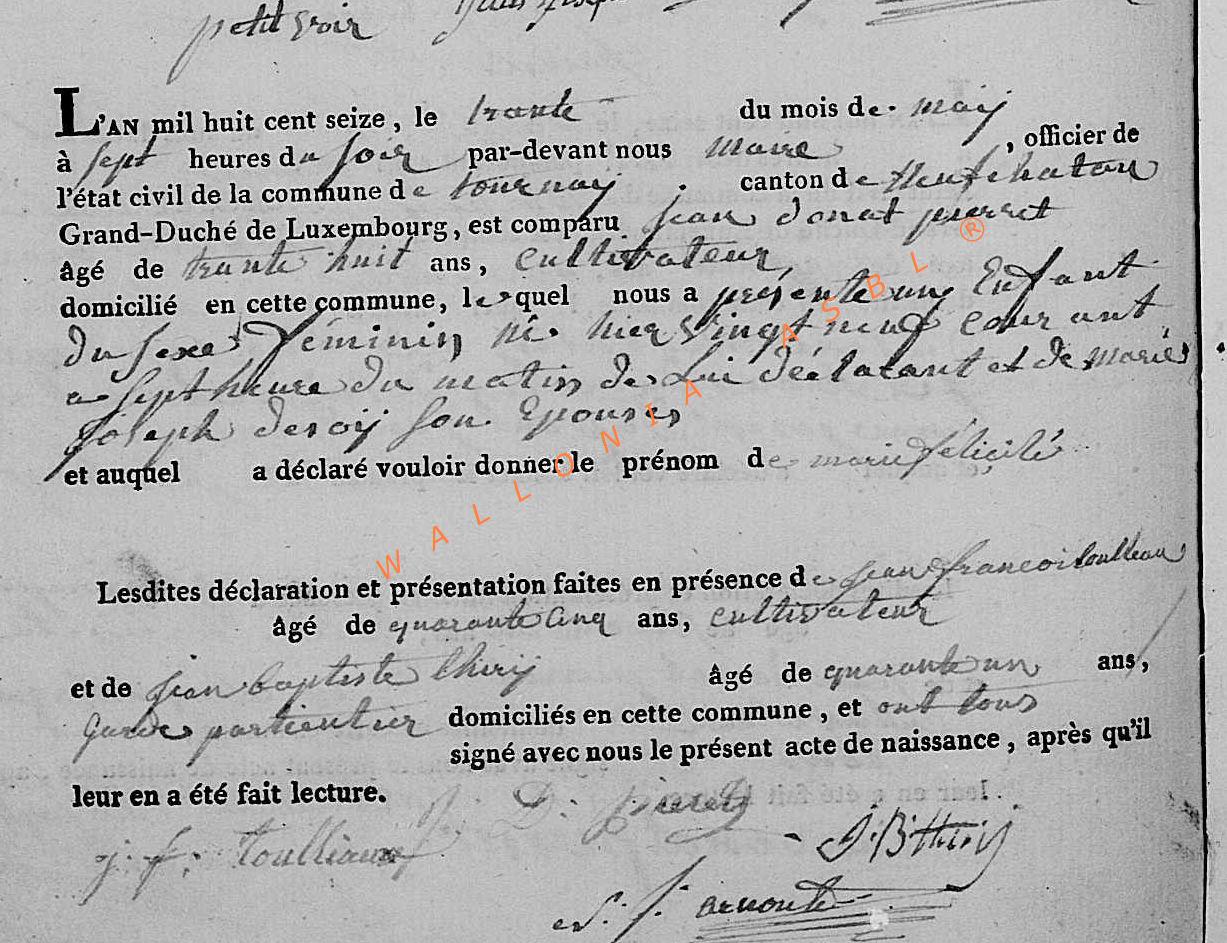 petit voir
L'AN mil huit cent seize, le trante du mois de may
à sept heures du soir par-devant nous maire, officier de
l'état civil de la commune de tournay canton de Neufchatau
Grand-Duché de Luxembourg, est comparu jean donat pierret
âgé de trante huit ans, cultivateur,
domicilié en cette commune, lesquel nous a presente un Enfant
du sexe féminin né hier vingt neuf courant
a sept heure du matin de Lui déclarant et de marie
Joseph deroy son Epouse
et auquel a déclaré vouloir donner le prénom de marie félicité
Lesdites déclaration et présentation faites en présence de jean francois toulleau
âgé de quarante cinq ans, cultivateur
et de jean baptiste thiry âgé de quarante un ans,
Garde particulier domiciliés en cette commune, et ont tous
signé avec nous le présent acte de naissance, après qu'il
leur en a été fait lecture.
J. D. pierret
j. f. Toulliaux
J. B thiry
J. arnould
WALLONIA ASBL ®